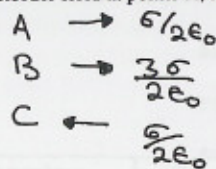 A → σ/2ε₀
B → 3σ/2ε₀
C ← σ/2ε₀